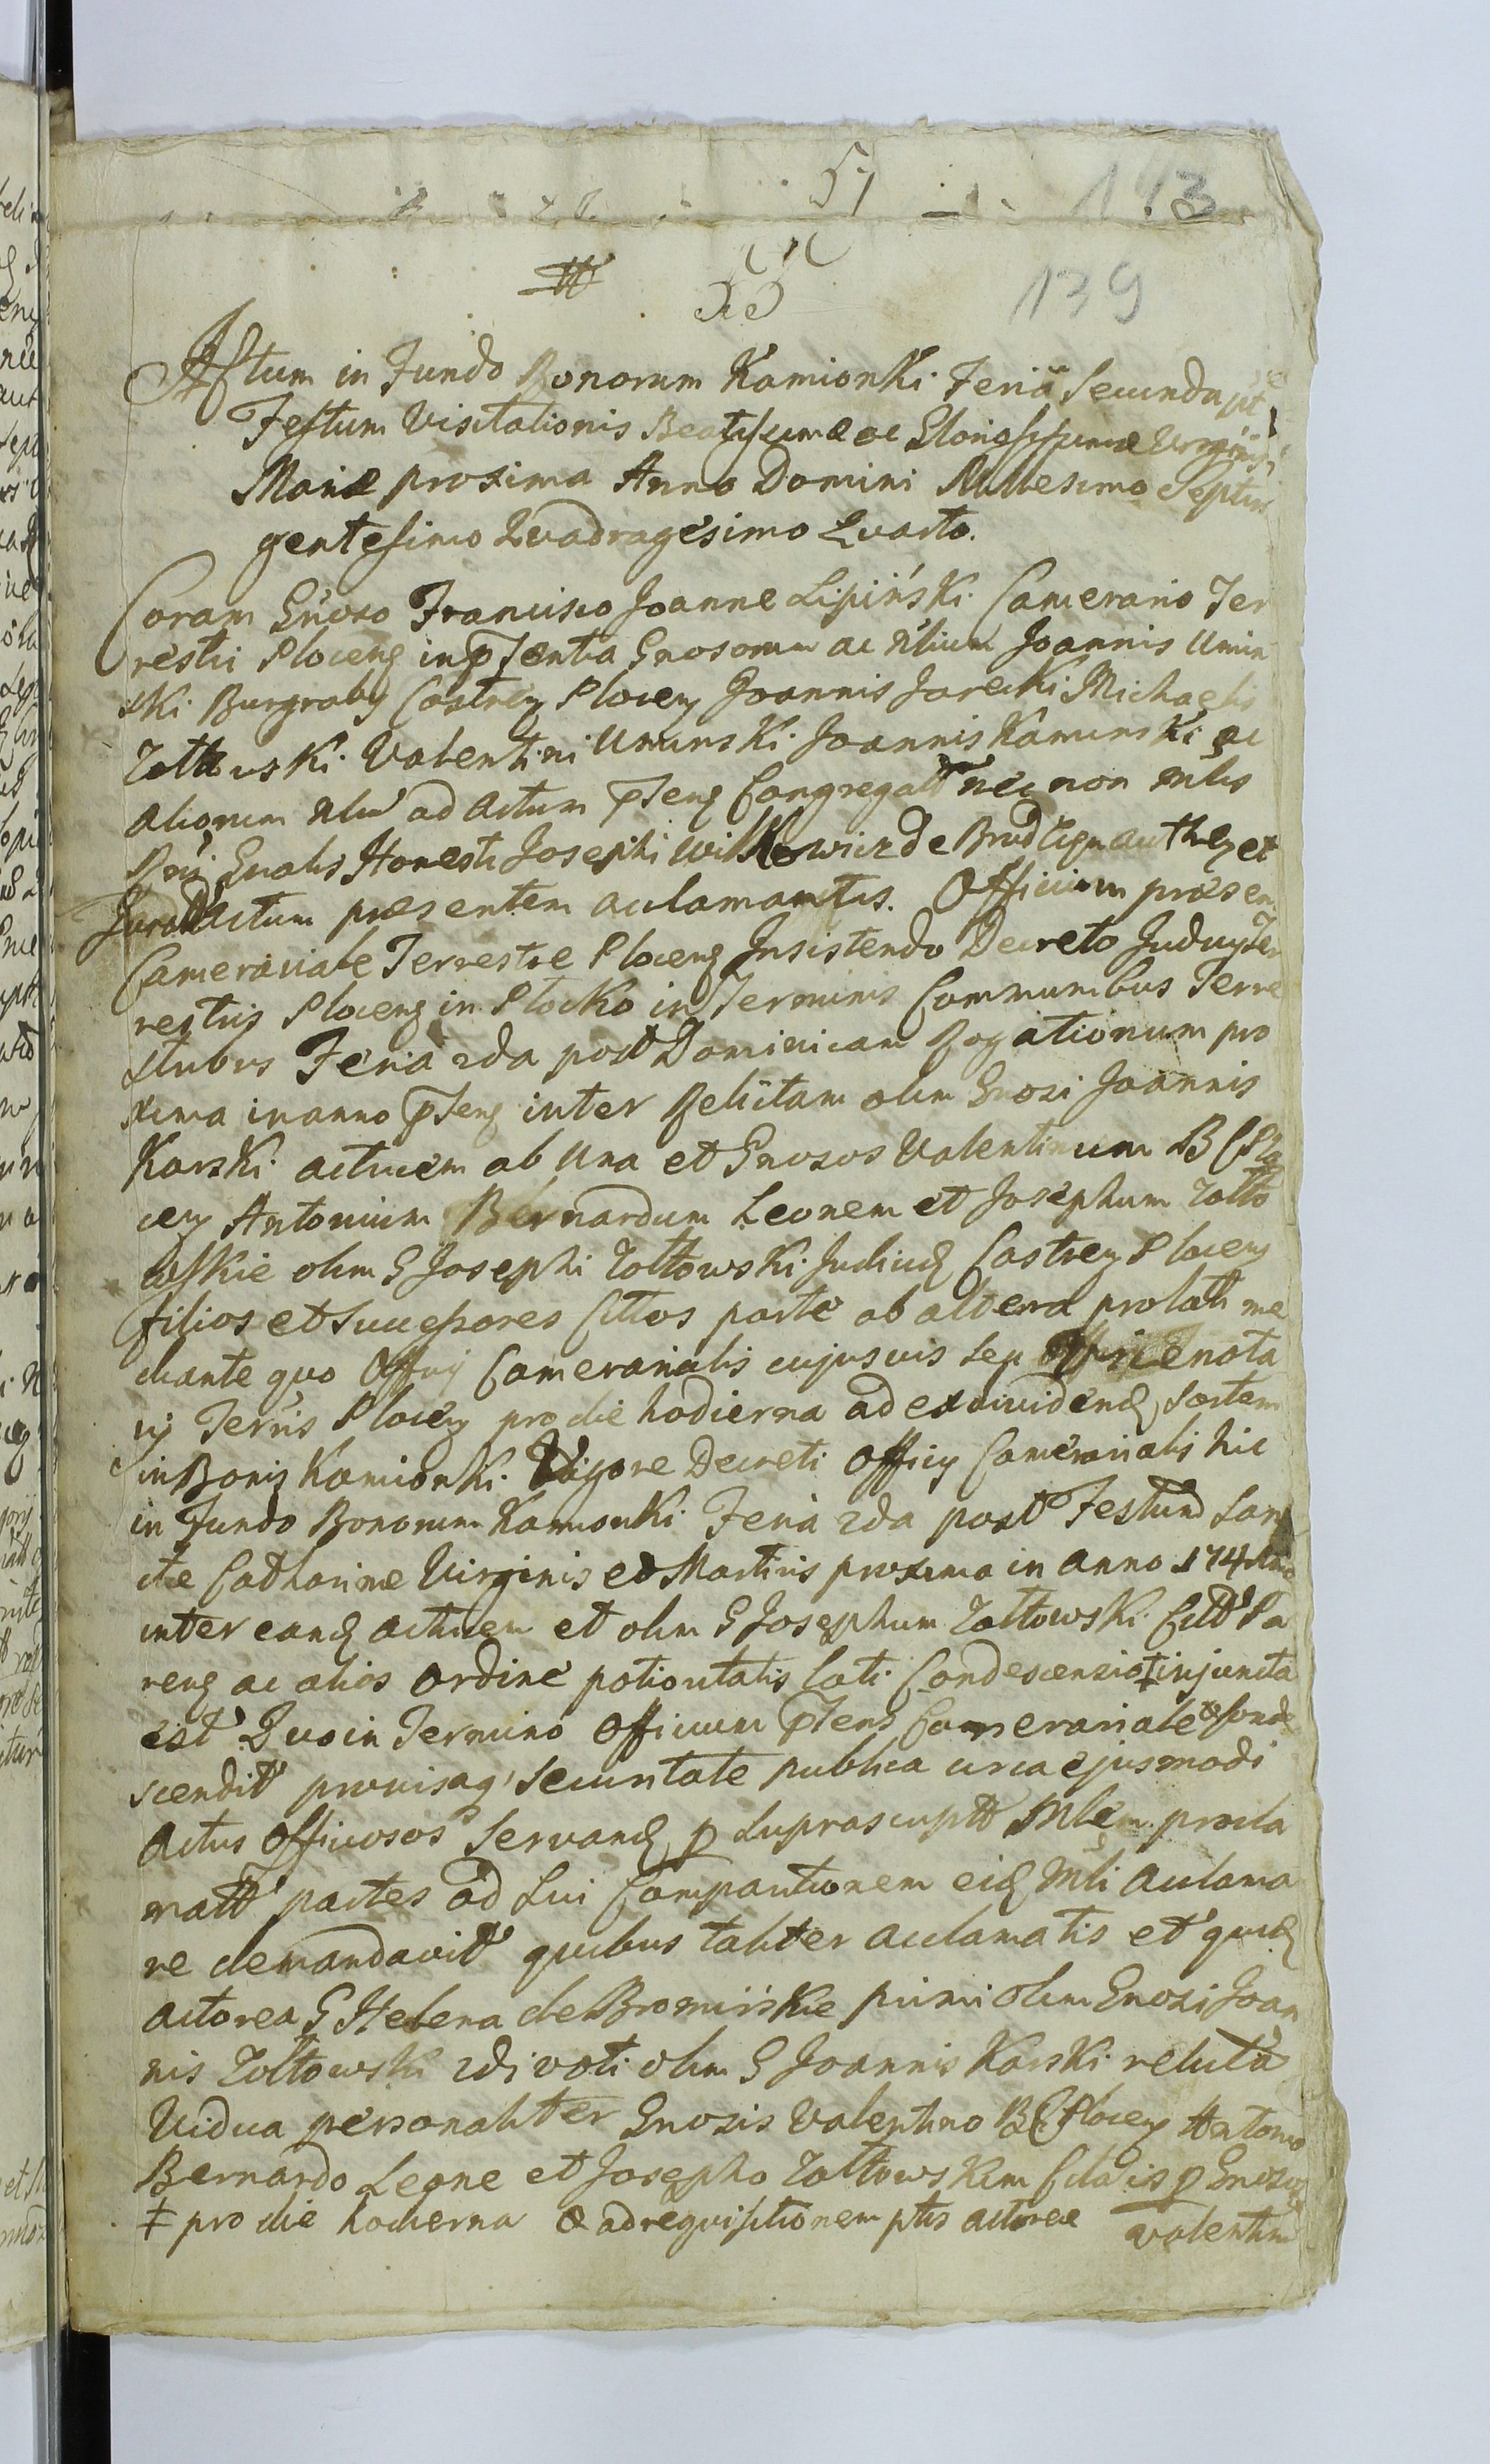 51
113
55
139
Actum in Fundo Bonorum Kamionki Feria Secunda pt
Festum Visitationis Beatissimæ ac Gloriosissimæ Virginis
Mariæ proxima Anno Domini Millesimo Septin
gentesimo Quadragesimo Quarto.
Coram Gnoso Francisco Joanne Lipiński Camerario Ter
restri Plocens in pntia Gnosorum ac Nlium Joannis Umin
ski Burgrabij Castren Plocen Joannis Jarecki Michaelis
Zołtowski Valentini Uminski Joannis Kaminski ac
aliorum Nliu ad Actum pntem Congregatt nec non Mlis
Rni Gnalis Honesti Josephi Wilkowicz de Brudt authen et
Juratt Actum præsentem aclamantis. Officium præsen
Camerariale Terrestre Plocens Insistendo Decreto Judicy Ter
restris Plocens in Płocko in Terminis Communibus Terre
stribus Feria 2da post Dominicam Rogationum pro
xima in anno pnti inter Relictam olim Gnosi Joannis
Karski actricem ab una et Gnosos Valentinum B C Plo
cen Antonium Bernardum Leonem et Josephum Zołto
wskie olim G Josephi Zołtowski Judicis Castren Plocen
filios et Successores Cittos parte ab altera prolati me
diante quo Officij Camerarialis cujusvis seu Vicenota
rij Terris Plocen pro die hodierna ad exdividend sortem
in Bonis Kamionki Vigore Decreti Officij Camerarialis hic
in Fundo Bonorum Kamionki Feria 2da post Festum San
ctæ Catharinæ Virginis et Martiris proxima in anno 174
inter eand actricem et olim G Josephum Zołtowski Citt Pa
rens ac alios ordine potioritatis lati Condescensio ‡ injuncta
est Quo in Termino Officium pntens Camerariale & Conde
scendit provisaq Securitate publica circa ejusmodi
Actus Officiosos Servand p suprascriptt Mlem procla
matt partes ad Sui Comparitionem eid Mli aclama
re demandavit quibus taliter aclamatis et quid
actorea G Helena de Bromirskie primi olim Gnosi Joan
nis Zołtowski 2di voti olim G Joannis Karski relicta
Vidua personaliter Gnosis Valentino B C Plocen Antonio
Bernardo Leone et Josepho Zołtowskim Citatis p Gnosum
‡ pro die hodierna & ad requisitionem ptis actoreæ Valentin